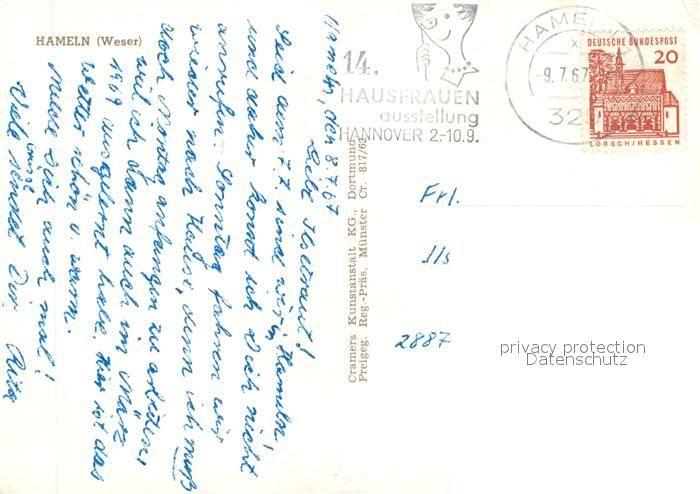 HAMELN (Weser)
Hameln, den 8.7.67
Liebe Iltraut!
Seid am 7.7. sind wir in Hameln,
und daher konnt ich Dich nicht
anrufen. Sonntag fahren wir
wieder nach Hause, denn ich muß
doch Montag anfangen zu arbeiten,
weil ich dann auch im März
1969 ausgelernt habe. Hier ist das
Wetter schön u. warm.
Melde Dich auch mal!
Viele Grüße
sendet Dir Rita
Cramers Kunstanstalt KG., Dortmund
Freigeg. Reg.-Präs. Münster Cr. 817/62
14.
HAUSFRAUEN
ausstellung
HANNOVER 2.-10.9.
HAMELN
-9.7.67
32
DEUTSCHE BUNDESPOST
20
LORSCH/HESSEN
Frl.
Ils
2887
privacy protection
Datenschutz